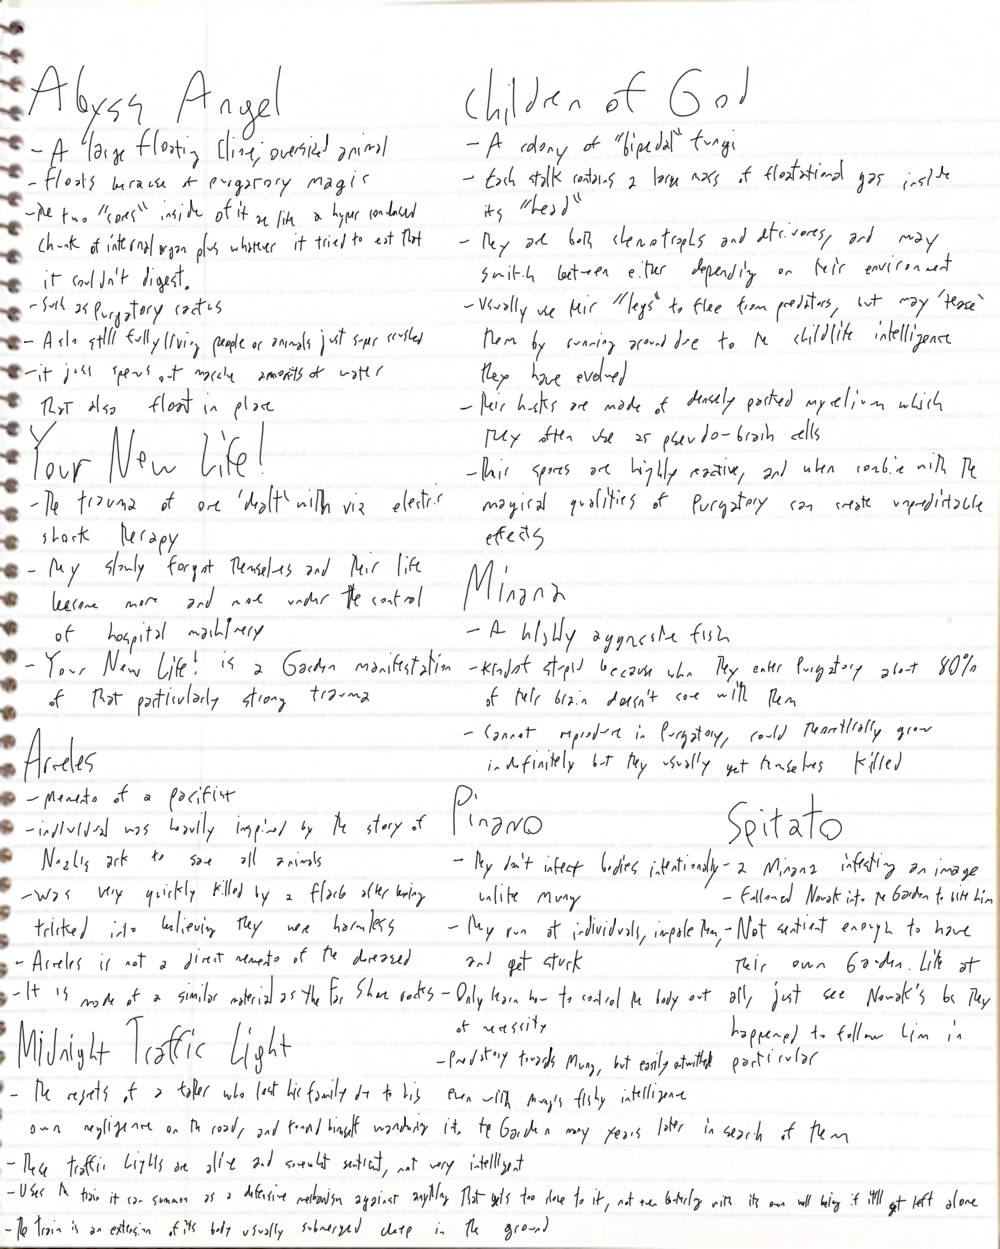 Abyss Angel
- A large floating [line, oversized animal
- floats because of purgatory magic
- The two "cores" inside of it are like a hyper condensed
chunk of internal organ plus whatever it tried to eat that
it couldn't digest.
- Such as Purgatory cactus
- Also still fully living people or animals just super crushed
- it just spews out massive amounts of water
That also float in place
Your New Life!
- The trauma of one 'dealt' with via electric
shock therapy
- They slowly forgot themselves and their life
became more and more under the control
of hospital machinery
- Your New Life! is a Garden manifestation
of that particularly strong trauma
- Memento of a pacifist
- individual was heavily inspired by the story of
ark to save all animals
- Was very quickly killed by a flock after being
tricked into believing they were harmless
- is not a direct memento of the deceased
- It is made of a similar material as the Far Shore rocks
Midnight Traffic Light
- The regrets of a who lost his family due to his
own negligence on the road, and found himself wandering into the Garden many years later in search of them
- These traffic lights are alive and somewhat sentient, not very intelligent
- Uses the train it can summon as a defensive mechanism against anything that gets too close to it, not even with its own well being if it'll get left alone
- The train is an extension of its body usually submerged deep in the ground
Children of God
- A colony of "bipedal" fungi
- Each stalk contains a large mass of floatational gas inside
its "head"
- They are both and may
switch between either depending on their environment
- Usually use their "legs" to flee from predators, but may 'tease'
them by running around due to the childlike intelligence
they have evolved
- Their husks are made of densely packed mycelium which
they often use as pseudo-brain cells
- their spores are highly reactive, and when combine with the
magical qualities of Purgatory can create unpredictable
effects
Minana
- A highly aggressive fish
- Kindof stupid because when they enter Purgatory about 80%
of their brain doesn't come with them
- Cannot reproduce in Purgatory, could theoretically grow
indefinitely but they usually get themselves killed
Pinano
- They don't infect bodies intentionally
unlike Mung
- They run at individuals, impale them,
and get stuck
- Only learn how to control the body out
of necessity
- Predatory towards Mung, but easily outwitted
even with Mung's fishy intelligence
Spitato
- a Minana infesting an image
- Followed Nowak into the Garden to bite him
- Not sentient enough to have
their own Garden. Like at
all, just see Nowak's bc they
happened to follow him in
particular